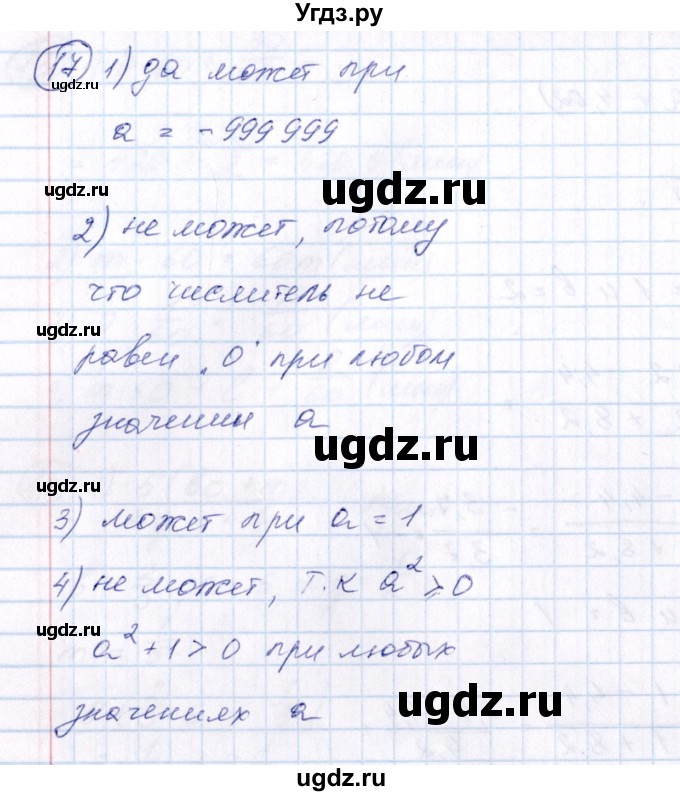 Угдз.ру
17 1) да может при
а = -999 999
ugdz.ru
ugdz.ru
2) не может, потому
что числитель не
ugdz.ru
равен "0" при любом
значении а
ugdz.ru
3) может при а = 1
4) не может, т.к а² ≥ 0
ugdz.ru
а² + 1 > 0 при любых
значениях а
ugdz.ru
ugdz.ru